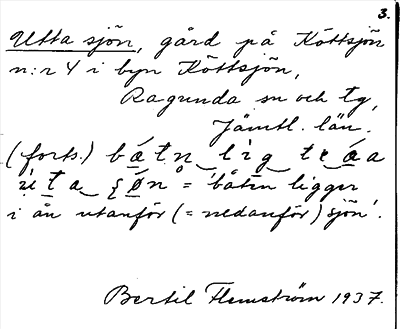 3.
Utta sjön, gård på Köttsjön
n:r 4 i byn Köttsjön,
Ragunda sn och tg,
Jämtl. län.
(forts.) bátn lìg
ø̂n = 'båten ligger
i ån utanför (= nedanför) sjön'.
Bertil Flemström 1937.